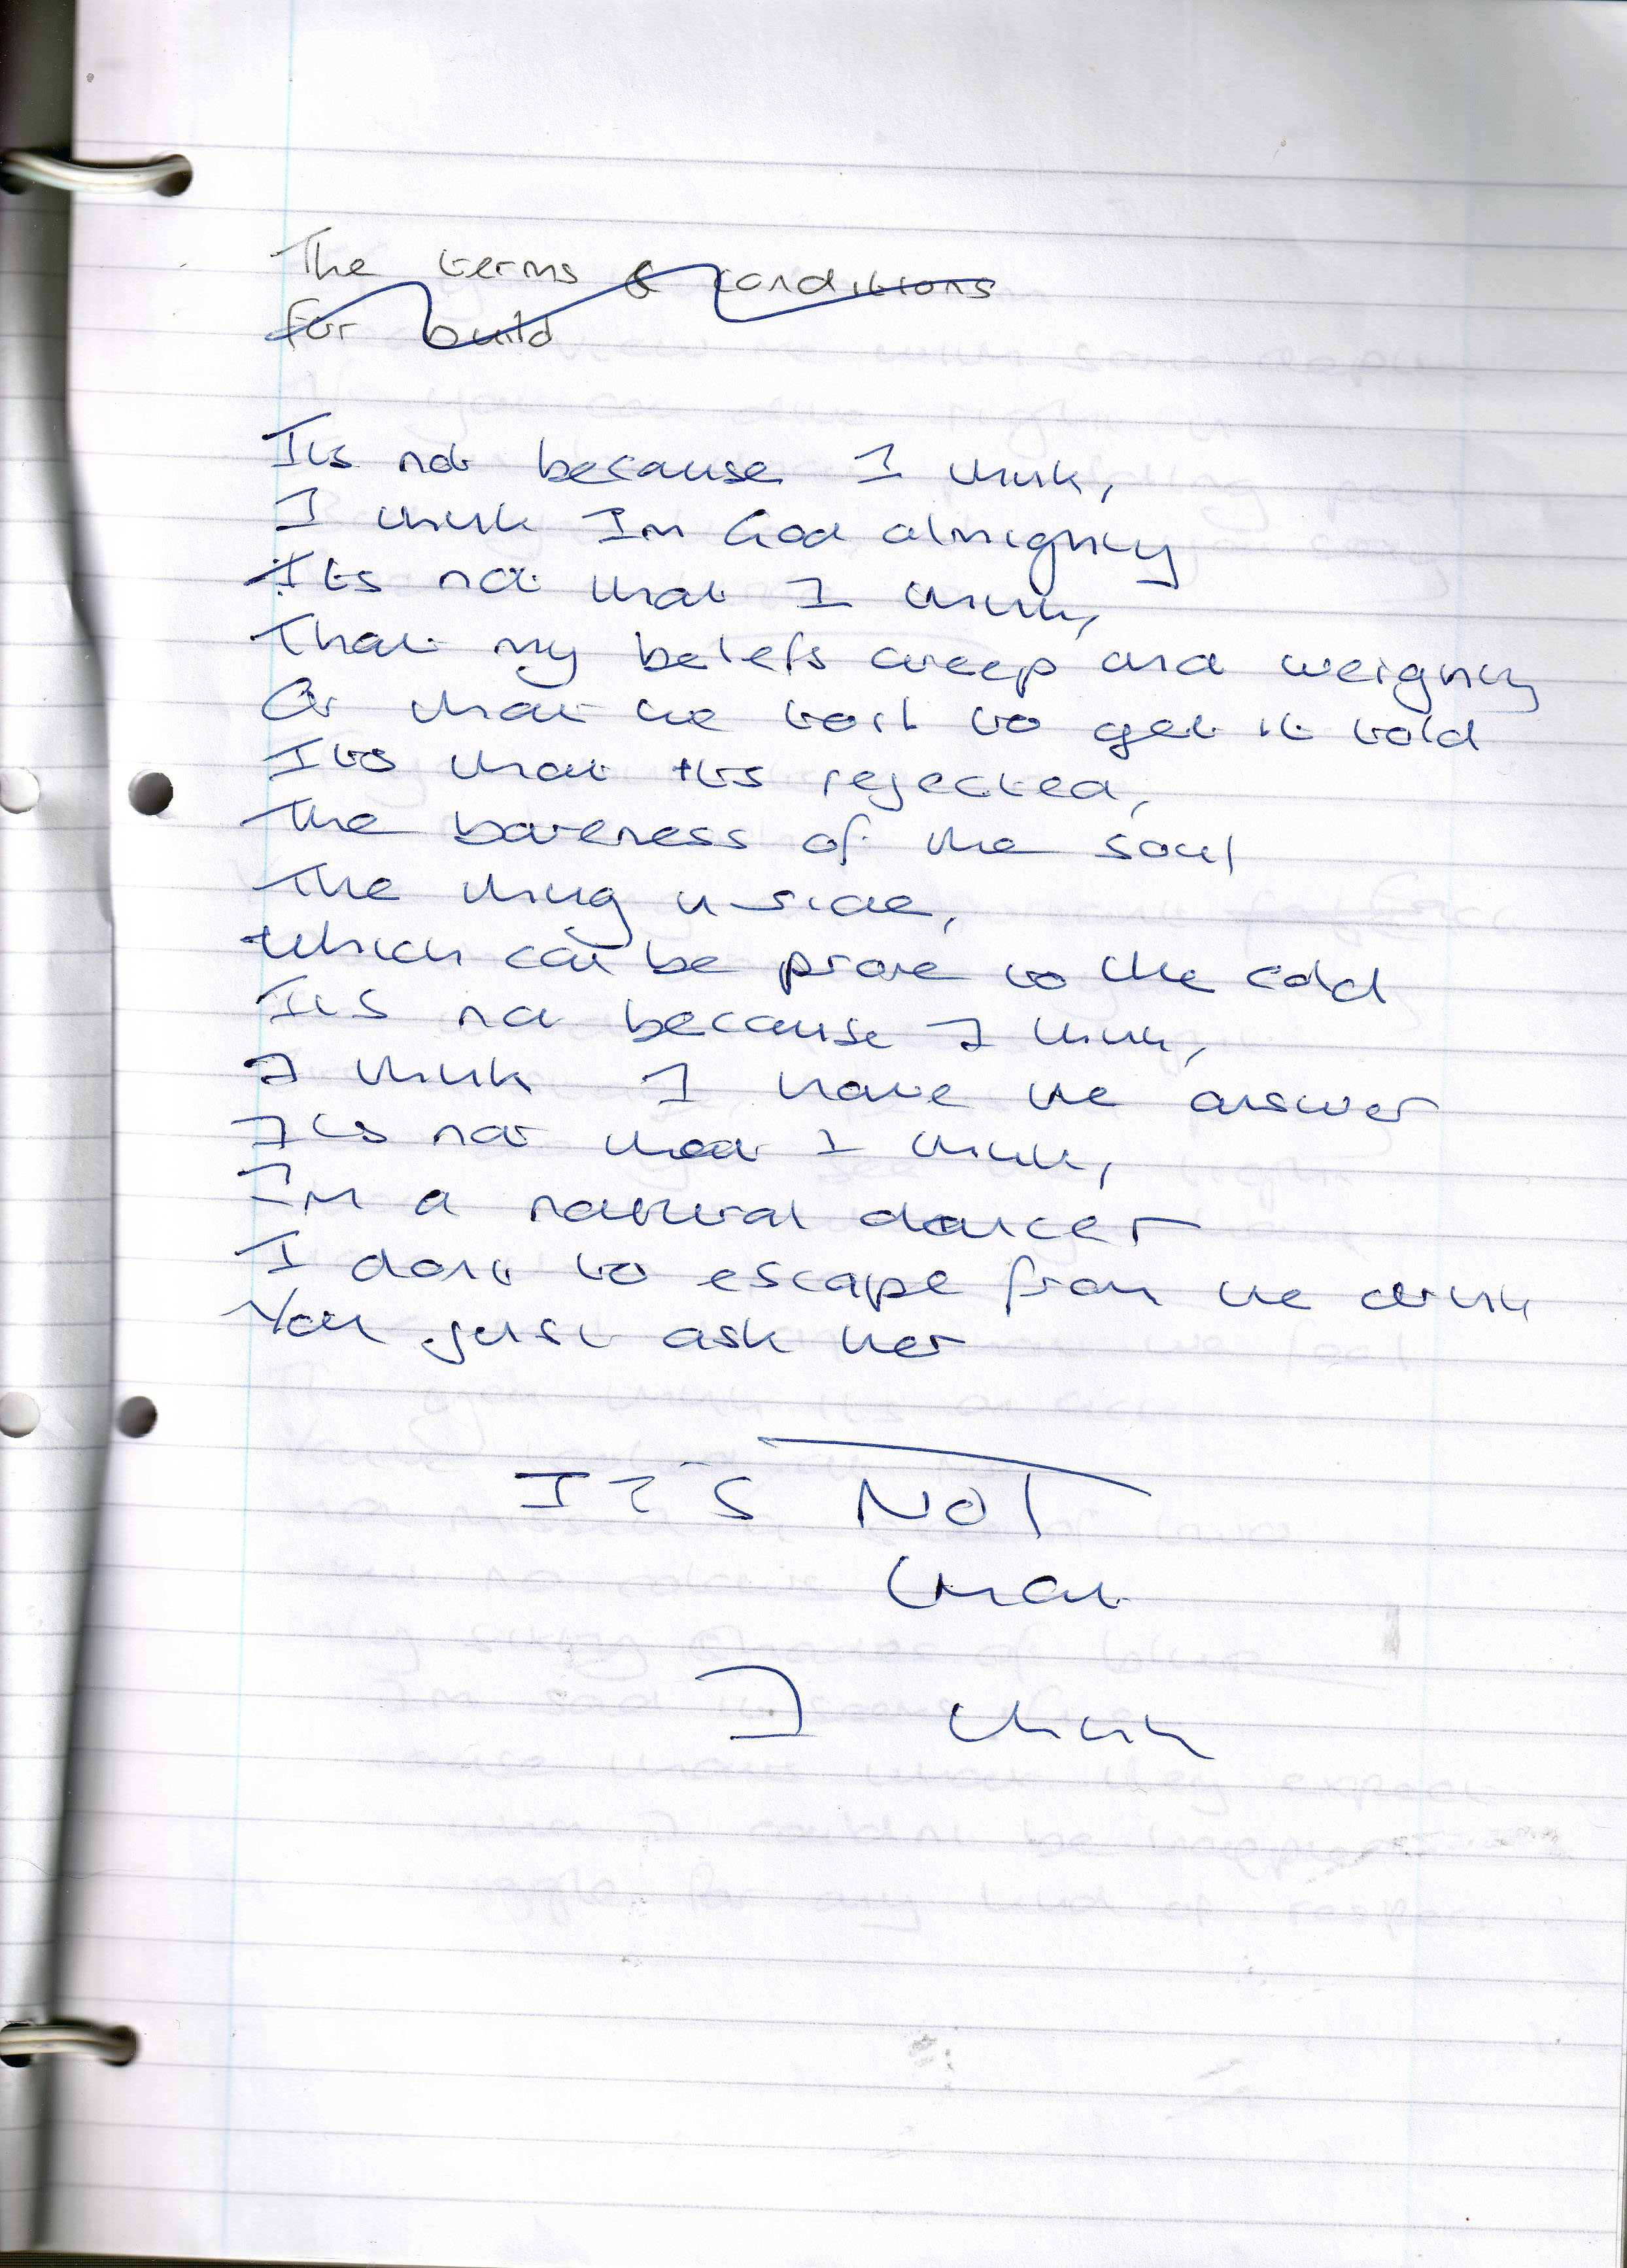 The terms & conditions
For build
Its not because I think,
I think Im God almighty
Its not that I think,
That my beliefs creep and weighty
Or that the toil to get it told
Its that its rejected,
The bareness of the soul
The thing inside,
Which can be prone to the cold
Its not because I think,
I think I have the answer
Its not that I think,
Im a natural dancer
I dont to escape from the drink
You just ask her
IT'S NOT
that
I think